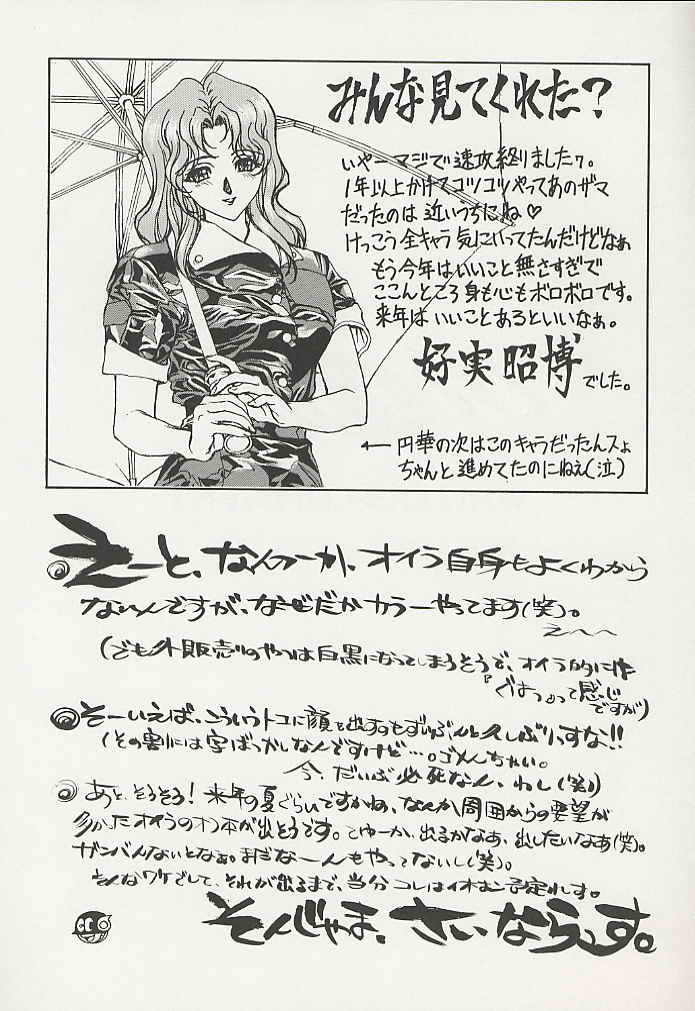 みんな見てくれた?
いやーマジで速攻終りましたァ。
1年以上かけてコツコツやってあのザマ
だったのは近いうちにね♡
けっこう全キャラ気にいってたんだけどなぁ
もう今年はいいこと無さすぎで
ここんところ身も心もボロボロです。
来年はいいことあるといいなぁ。
好実昭博でした。
← 円華の次はこのキャラだったんスよ
ちゃんと進めてたのにねぇ(泣)
えーと、なんつーか、オイラ自身もよくわから
ないんですが、なぜだかカラーやってます(笑)。
え〜〜
(でも外販売りのやつは白黒になってしまうそうで、オイラ的に
『ぐはっ』って感じ
ですが)
そーいえば、こういうトコに顔を出すのもずいぶんと久しぶりっすな!!
(その割りには字ばっかしなんですけど…。ゴメんちゃい。
今、だいぶ必死なん、わし(笑))
あと、そうそう!来年の夏ぐらいですかね、なんか周囲からの要望が
多かったオイラのオフ本が出そうです。てゆーか、出るかなあ、出したいなあ(笑)。
ガンバんないとなぁ。まだなーんもやってないし(笑)。
そんなワケでして、それが出るまで、当分コレはイオキン予定れす。
そんじゃま、さいならっす。